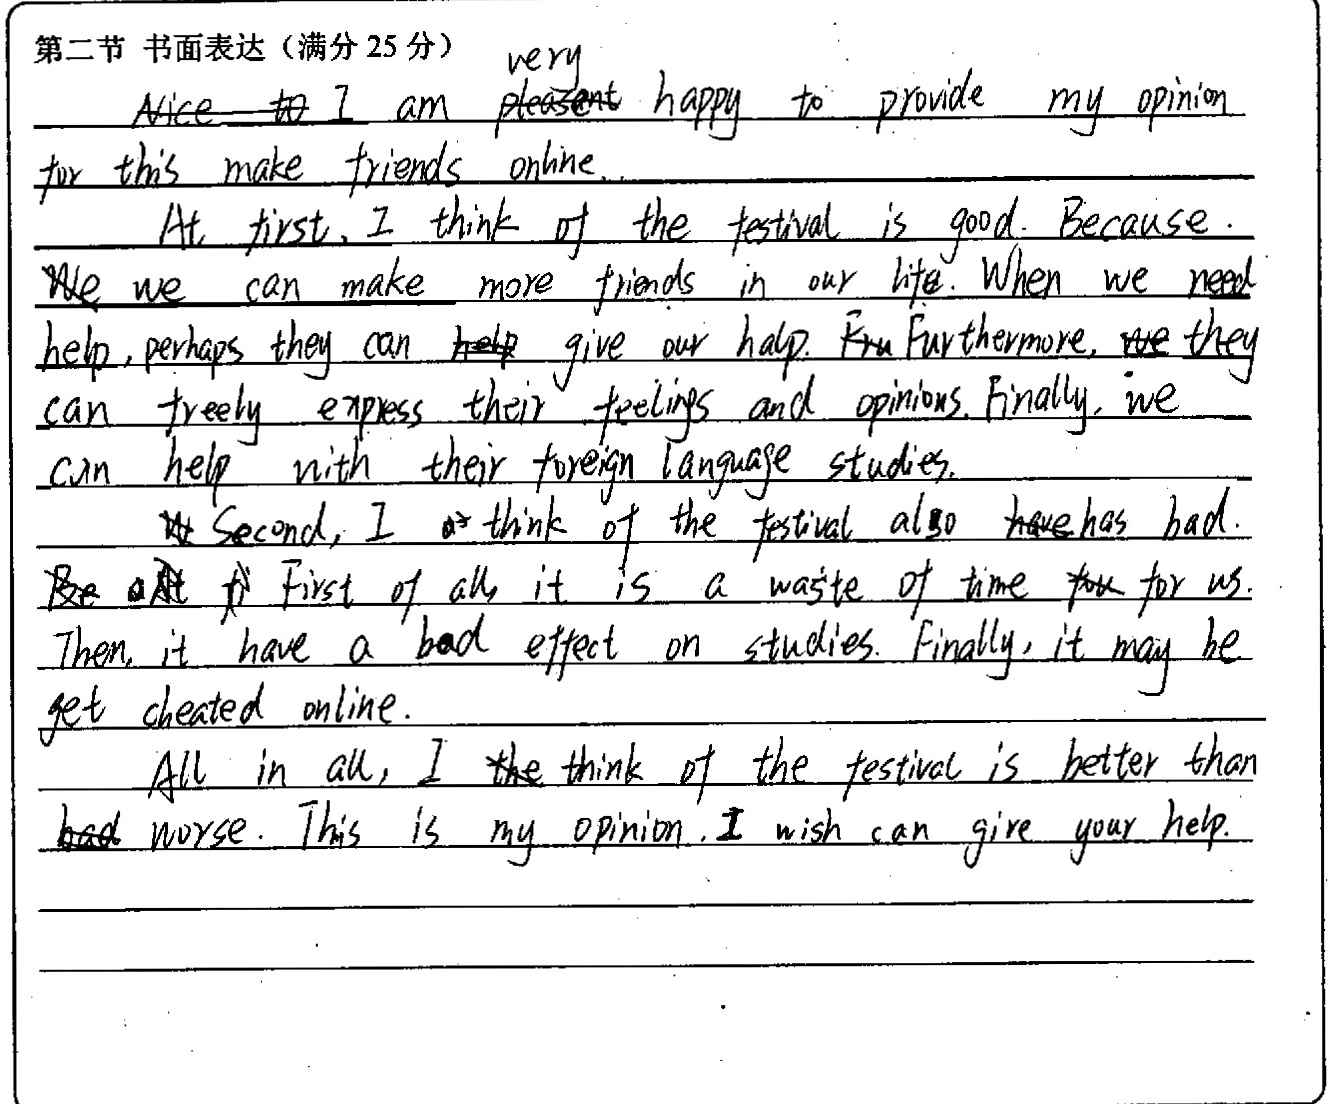 第二节 书面表达（满分 25 分）
very
Nice to I am pleasent happy to provide my opinion
for this make friends online.
At first, I think of the festival is good. Because.
We we can make more friends in our life. When we need
help, perhaps they can help give our halp. Fru Furthermore, we they
can freely express their feelings and opinions. Finally, we
can help with their foreign language studies.
Second, I think of the festival also have has bad.
Be At fi First of all, it is a waste of time fou for us.
Then, it have a bad effect on studies. Finally, it may be
get cheated online.
All in all, I the think of the festival is better than
bad worse. This is my opinion. I wish can give your help.